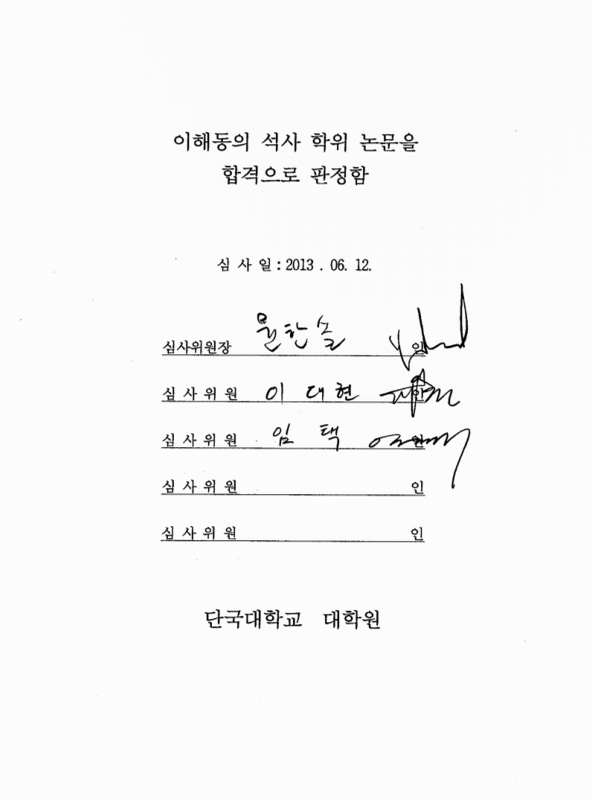 이해동의 석사 학위 논문을
합격으로 판정함
심 사 일 : 2013 . 06. 12.
심사위원장 윤한솔 인
심 사 위 원 이 대 현 인
심 사 위 원 임 택 인
심 사 위 원 인
심 사 위 원 인
단국대학교 대학원